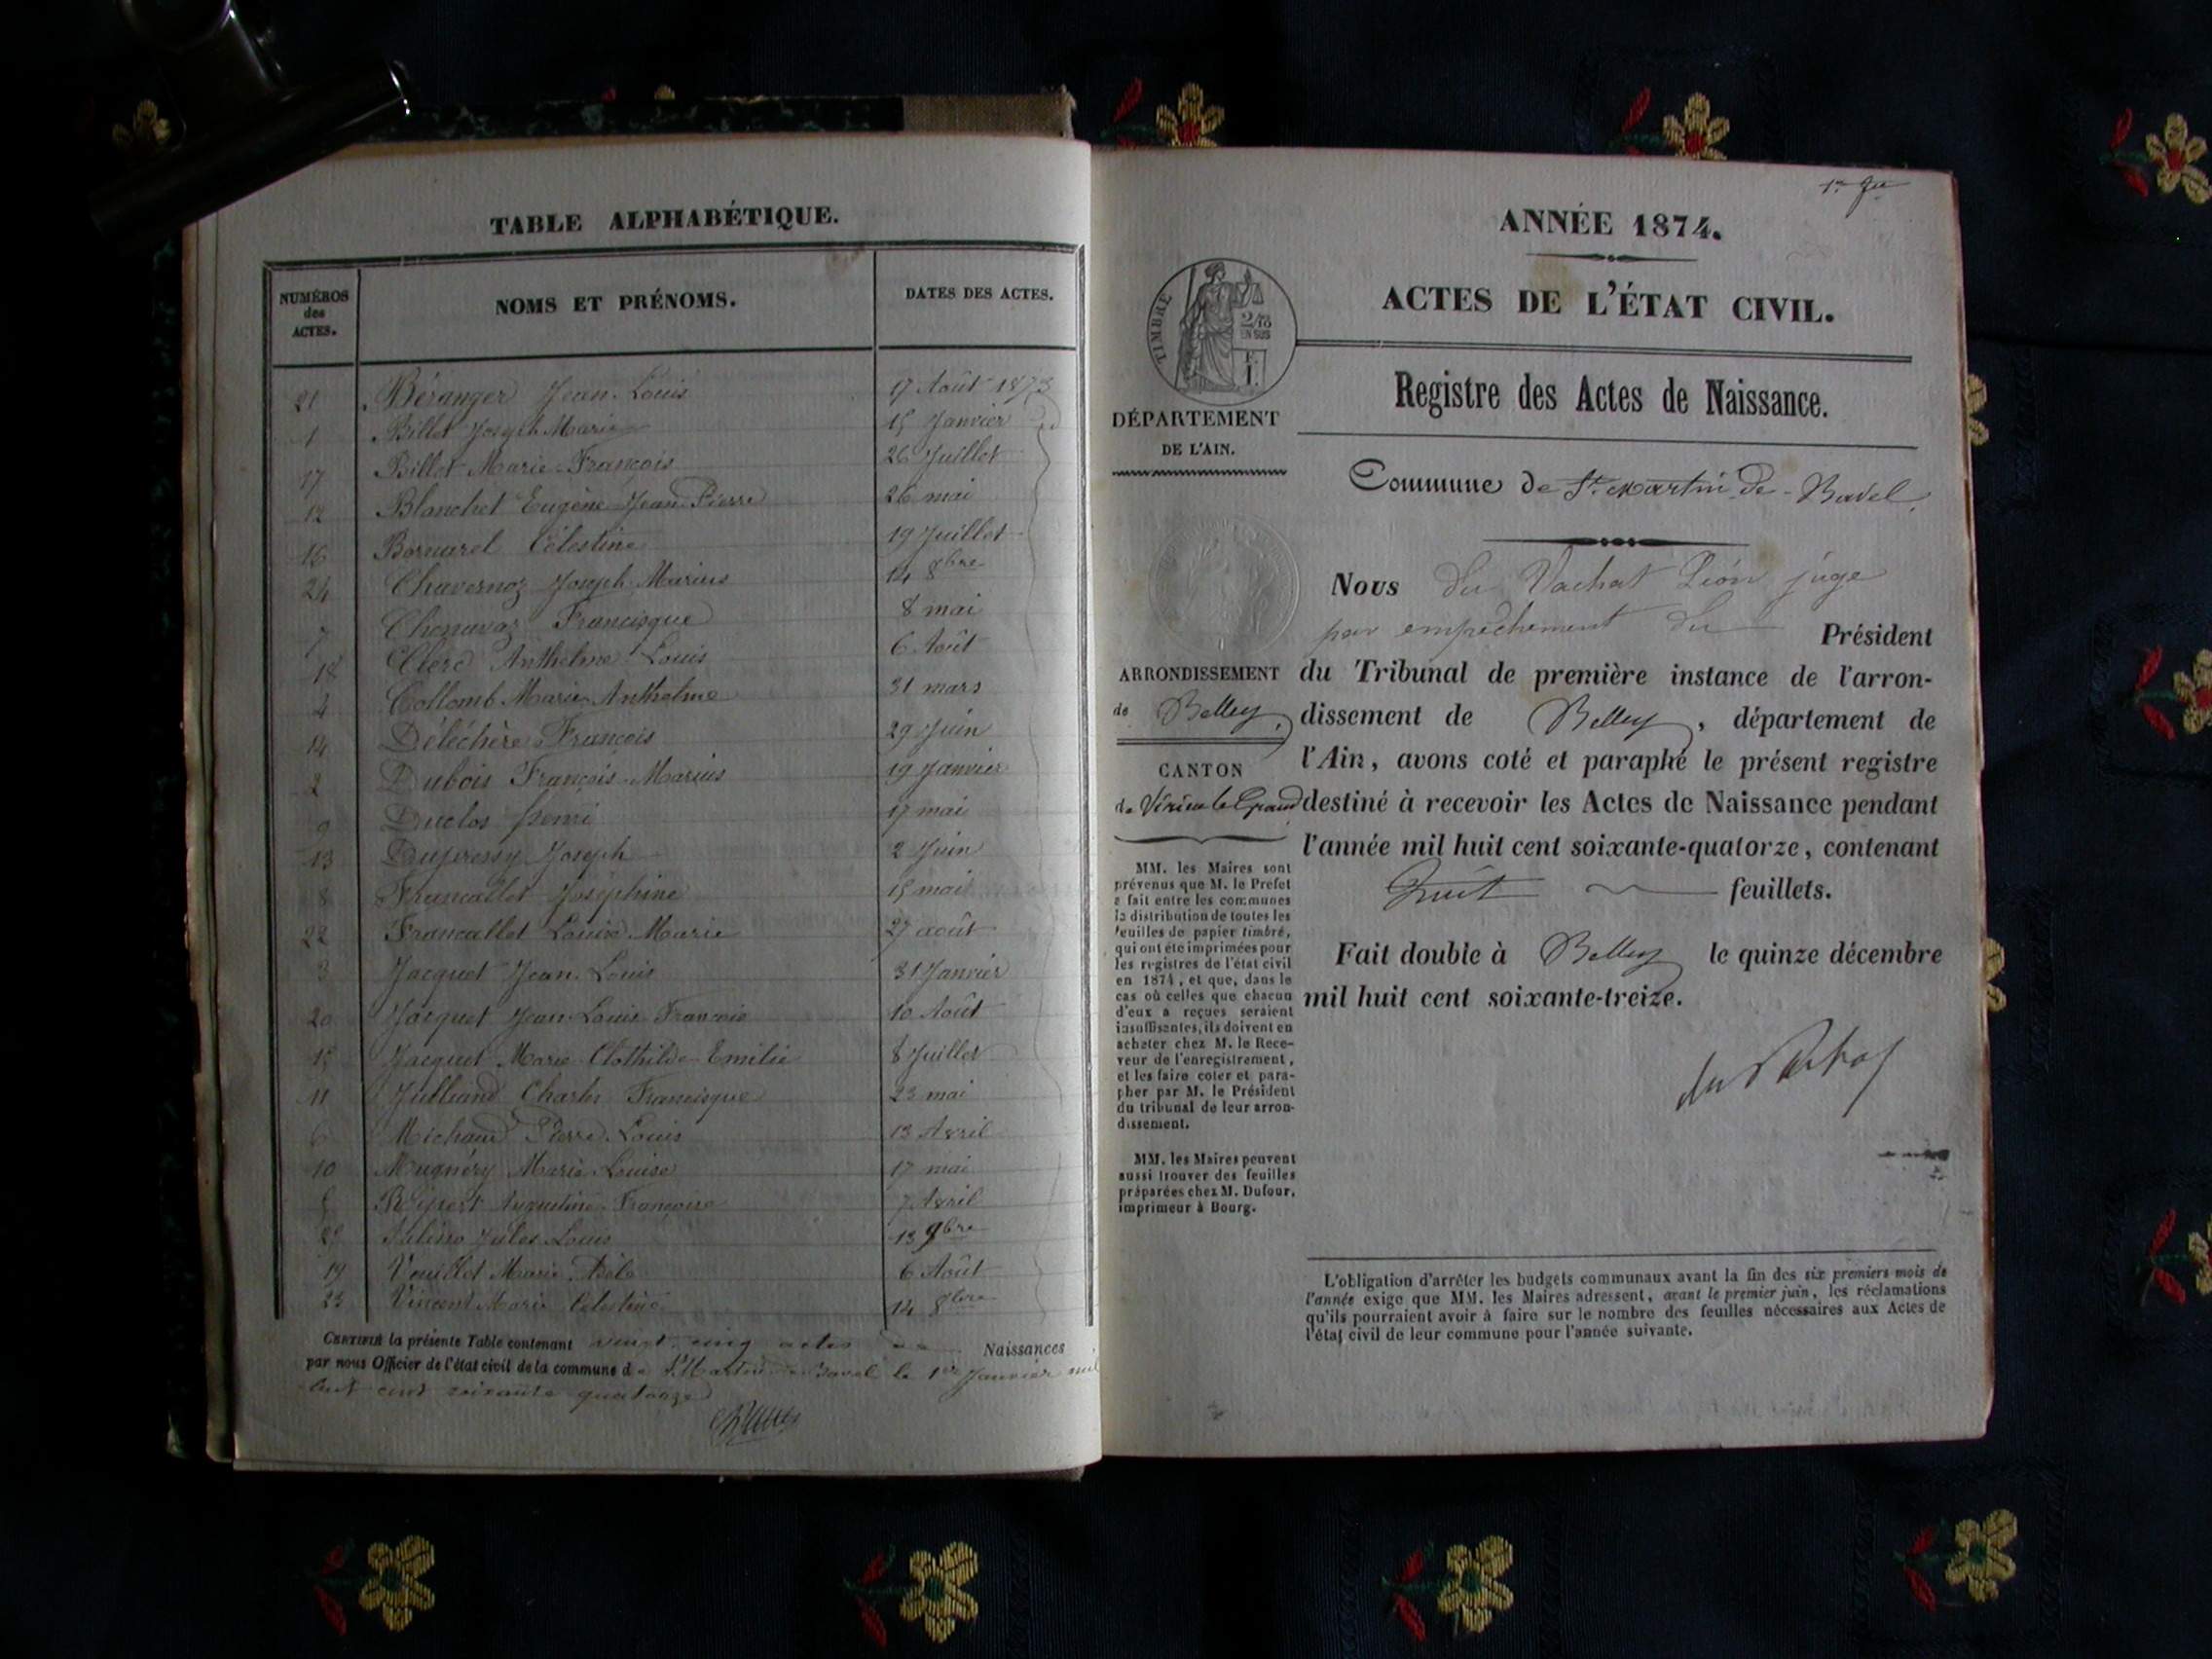 TABLE ALPHABÉTIQUE.
NUMÉROS des ACTES. NOMS ET PRÉNOMS. DATES DES ACTES.
21 Béranger Jean-Louis 17 Août 1873
1 Billet Joseph Marie 15 Janvier
17 Billet Marie-François 26 Juillet
12 Blanchet Eugène Jean-Pierre 26 mai
16 Bornarel Célestine 19 Juillet
24 Chavernoz Joseph-Marius 14 8bre
7 Francisque 8 mai
18 Clerc Anthelme-Louis 6 Août
4 Collomb Marie-Anthelme 31 mars
14 Déléchère François 29 Juin
2 Dubois François-Marius 19 Janvier
9 Duclos Henri 17 mai
13 Dupressy Joseph 2 Juin
8 Francallet Joséphine 15 mai
22 Francallet Louise Marie 27 août
3 Jacquet Jean-Louis 31 Janvier
20 Jacquet Jean-Louis François 10 Août
15 Jacquet Marie-Clothilde-Emilie 8 Juillet
11 Julliand Charles Francisque 23 mai
6 Michaud Pierre-Louis 13 Avril
10 Mugnéry Marie-Louise 17 mai
5 Augustine-Françoise 7 Avril
25 Jules-Louis 13 9bre
19 Vouillet Marie 6 Août
23 Vincent Marie Célestine 14 8bre
CERTIFIÉ la présente Table contenant vingt-cinq actes de Naissances
par nous Officier de l'état civil de la commune de St Martin de Bavel le 1er Janvier mil
huit cent soixante quatorze
ANNÉE 1874.
ACTES DE L'ÉTAT CIVIL.
TIMBRE
2/10
EN SUS
Registre des Actes de Naissance.
DÉPARTEMENT
DE L'AIN.
Commune de St Martin-de-Bavel.
Nous du Vachat Léon juge
par empêchement du Président
du Tribunal de première instance de l'arron-
dissement de Belley, département de
l'Ain, avons coté et paraphé le présent registre
destiné à recevoir les Actes de Naissance pendant
l'année mil huit cent soixante-quatorze, contenant
huit feuillets.
Fait double à Belley le quinze décembre
mil huit cent soixante-treize.
du Vachat
ARRONDISSEMENT
de Belley,
CANTON
de Virieu le Grand
MM. les Maires sont
prévenus que M. le Préfet
a fait entre les communes
la distribution de toutes les
feuilles de papier timbré,
qui ont été imprimées pour
les registres de l'état civil
en 1874, et que, dans le
cas où celles que chacun
d'eux a reçues seraient
insuffisantes, ils doivent en
acheter chez M. le Rece-
veur de l'enregistrement,
et les faire coter et para-
pher par M. le Président
du tribunal de leur arron-
dissement.
MM. les Maires peuvent
aussi trouver des feuilles
préparées chez M. Dufour,
imprimeur à Bourg.
L'obligation d'arrêter les budgets communaux avant la fin des six premiers mois de
l'année exige que MM. les Maires adressent, avant le premier juin, les réclamations
qu'ils pourraient avoir à faire sur le nombre des feuilles nécessaires aux Actes de
l'état civil de leur commune pour l'année suivante.